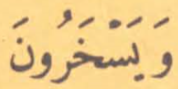 وَيَسْخَرُونَ